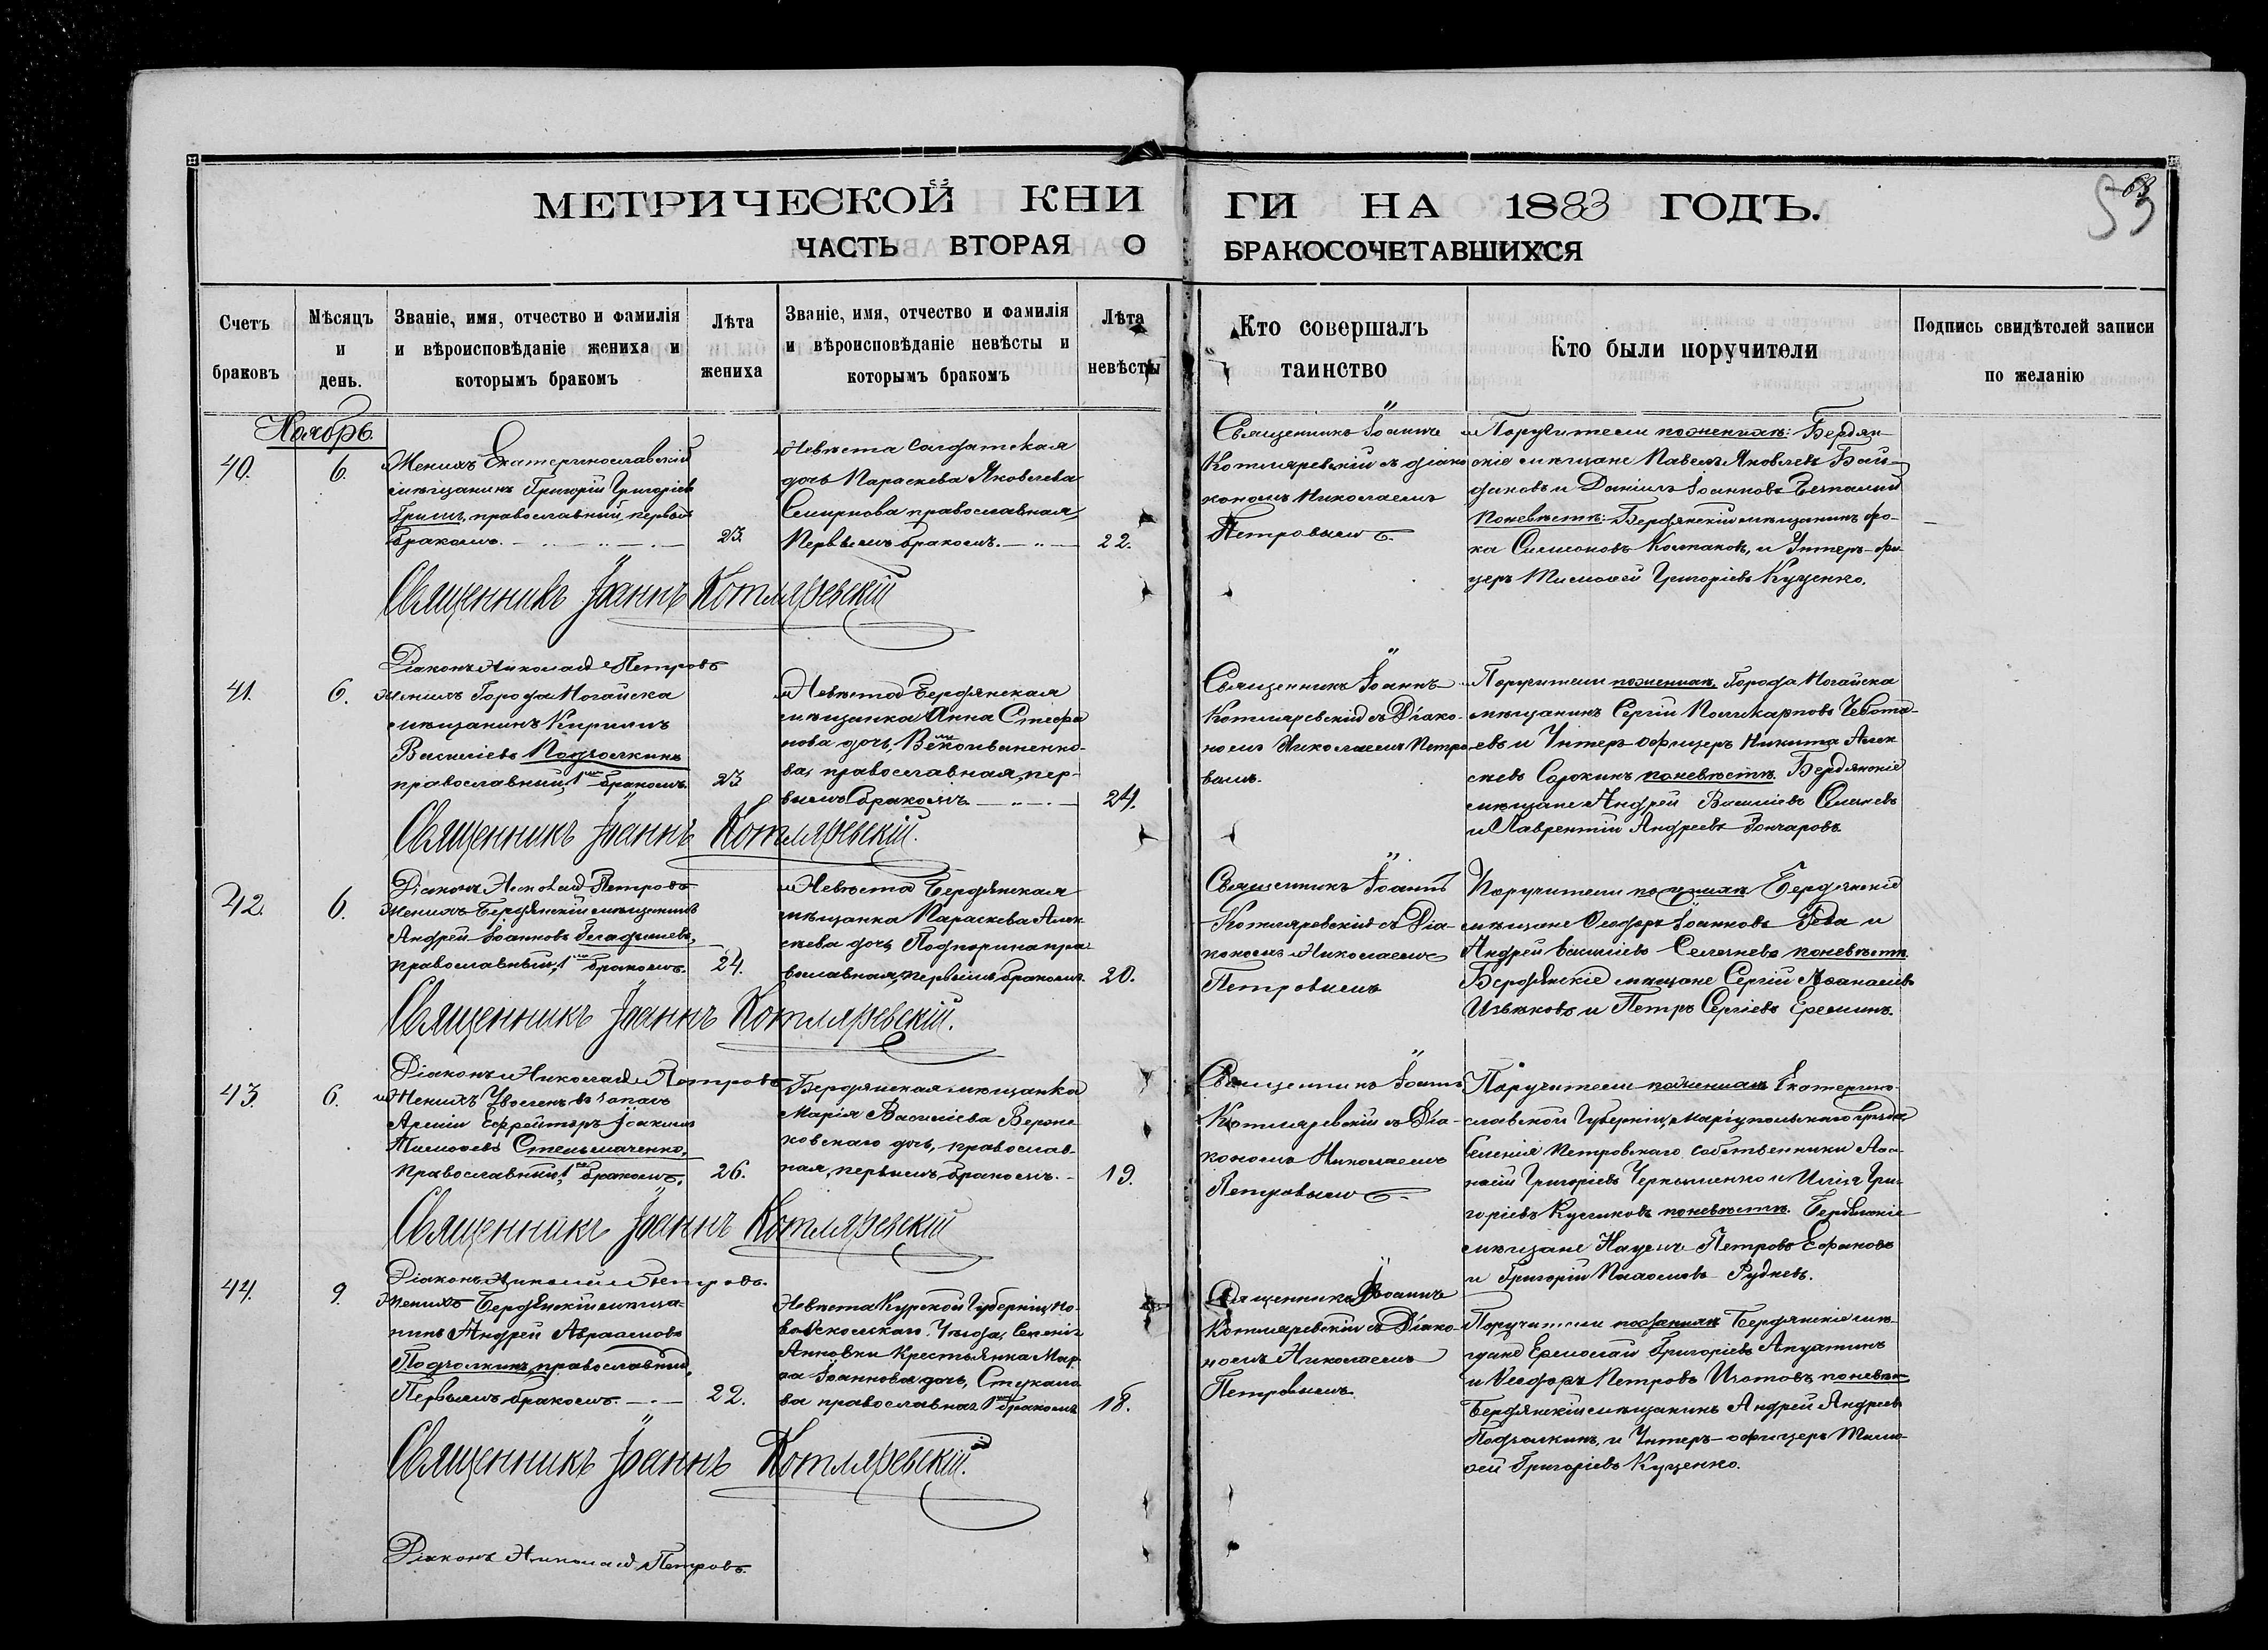 МЕТРИЧЕСКОЙ КНИ
ГИ НА 1883 ГОДЪ.
53
ЧАСТЬ ВТОРАЯ О
БРАКОСОЧЕТАВШИХСЯ
Счетъ браковъ
Мѣсяцъ и день.
Званіе, имя, отчество и фамилія и вѣроисповѣданіе жениха и которымъ бракомъ
Лѣта жениха
Званіе, имя, отчество и фамилія и вѣроисповѣданіе невѣсты и которымъ бракомъ
Лѣта невѣсты
Кто совершалъ таинство
Кто были поручители
Подпись свидѣтелей записи по желанію
Ноябрь.
40.
6.
Женихъ Екатеринославскій
мѣщанинъ Григорій Григоріевъ
православный, первымъ
бракомъ.
23.
Невѣста солдатская
дочь Параскева Яковлева
Смирнова православная,
Первымъ бракомъ.
22.
Священникъ Іоаннъ
Котляревскій съ діа
кономъ Николаемъ
Петровымъ
Поручители по женихѣ: Бердян-
скіе мѣщане Павелъ Яковлевъ Бай-
даковъ и Даніилъ Іоанновъ
По невѣстѣ: Бердянскій мѣщанинъ Фо-
ка Симоновъ Колпаковъ, и Унтеръ-офи-
церъ Тимофей Григоріевъ Куценко.
Священникъ Іоаннъ Котляревскій
Діаконъ Николай Петровъ
41.
6.
Женихъ Города Ногайска
мѣщанинъ Кириллъ
Василіевъ Подколкинъ
православный, 1мъ бракомъ.
23
Невѣста Бердянская
мѣщанка Анна Стефа
нова дочь,
ва, православная, пер-
вымъ бракомъ
24.
Священникъ Іоаннъ
Котляревскій съ Діако-
номъ Николаемъ Петро
вымъ.
Поручители по женихѣ Города Ногайска
мѣщанинъ Сергій Поликарповъ Чебота-
евъ и Унтеръ-офицеръ Никита Алек
сѣевъ Сорокинъ по невѣстѣ Бердянскіе
мѣщане Андрей Василіевъ
и Лаврентій Андреевъ Гончаровъ
Священникъ Іоаннъ Котляревскій.
Діаконъ Николай Петровъ
42.
6.
Женихъ Бердянскій мѣщанинъ
Андрей Іоанновъ
православный, 1мъ бракомъ.
24.
Невѣста Бердянская
мѣщанка Параскева Алек
сѣева дочь Подпорина пра
вославная, первымъ бракомъ.
20.
Священникъ Іоаннъ
Котляревскій съ Діа-
кономъ Николаемъ
Петровымъ
Поручители по женихѣ Бердянскіе
мѣщане Феодоръ Іоанновъ и
Андрей Василіевъ Селезневъ по невѣстѣ
Бердянскіе мѣщане Сергій Аѳанасіевъ
Извѣковъ и Петръ Сергіевъ Ереминъ.
Священникъ Іоаннъ Котляревскій.
Діаконъ Николай Петровъ
43.
6.
Женихъ Уволенъ въ запасъ
Арміи Ефрейторъ Іоакимъ
Тимофеевъ Стельмаченко,
православный, 1мъ бракомъ.
26.
Бердянская мѣщанка
Марія Василіева
ковскаго дочь, православ-
ная, первымъ бракомъ.
19.
Священникъ Іоаннъ
Котляревскій съ Діа-
кономъ Николаемъ
Петровымъ
Поручители по женихѣ Екатерино-
славской Губерніи, Маріупольскаго уѣзда
Селенія Петровскаго собственники Аѳа-
насій Григоріевъ и Илія Гри-
горіевъ Кусликовъ по невѣстѣ. Бердянскіе
мѣщане Наумъ Петровъ
и Григорій Рудневъ.
Священникъ Іоаннъ Котляревскій
Діаконъ Николай Петровъ.
44.
9.
Женихъ Бердянскій мѣща-
нинъ Андрей Авраамовъ
Подколкинъ, православный,
Первымъ бракомъ.
22.
Невѣста Курской Губерніи, Но-
вооскольскаго Уѣзда, Селенія
Анновки Крестьянка Мар
Іоаннова дочь, Стукало
ва православная 1мъ бракомъ
18.
Священникъ Іоаннъ
Котляревскій съ Діако-
номъ Николаемъ
Петровымъ.
Поручители по женихѣ Бердянскіе мѣ-
щане Ермолай Григоріевъ
и Феодоръ Петровъ Изотовъ по невѣс
Бердянскій мѣщанинъ Андрей Андреевъ
Подколкинъ, и Унтеръ-офицеръ Тимо-
фей Григоріевъ Куценко.
Священникъ Іоаннъ Котляревскій.
Діаконъ Николай Петровъ.